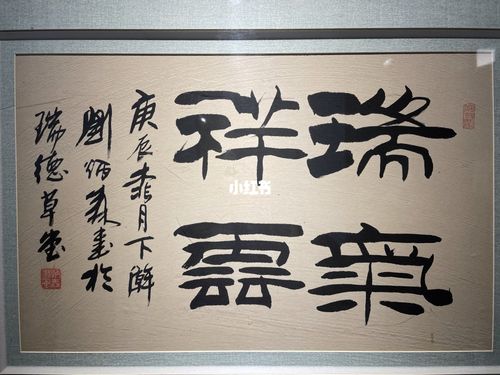 瑞氣
祥雲
庚辰月下澣
劉炳森書於
瑞德草堂
小红书